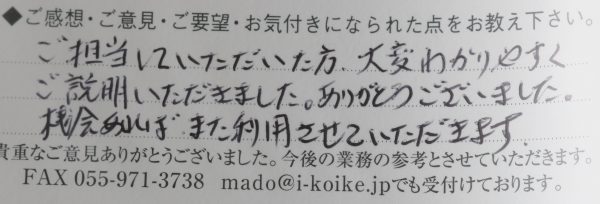 ◆ご感想・ご意見・ご要望・お気付きになられた点をお教え下さい。
ご担当していただいた方、大変わかりやすく
ご説明いただきました。ありがとうございました。
機会あればまた利用させていただきます。
貴重なご意見ありがとうございました。今後の業務の参考とさせていただきます。
FAX 055-971-3738 mado@i-koike.jpでも受付けております。